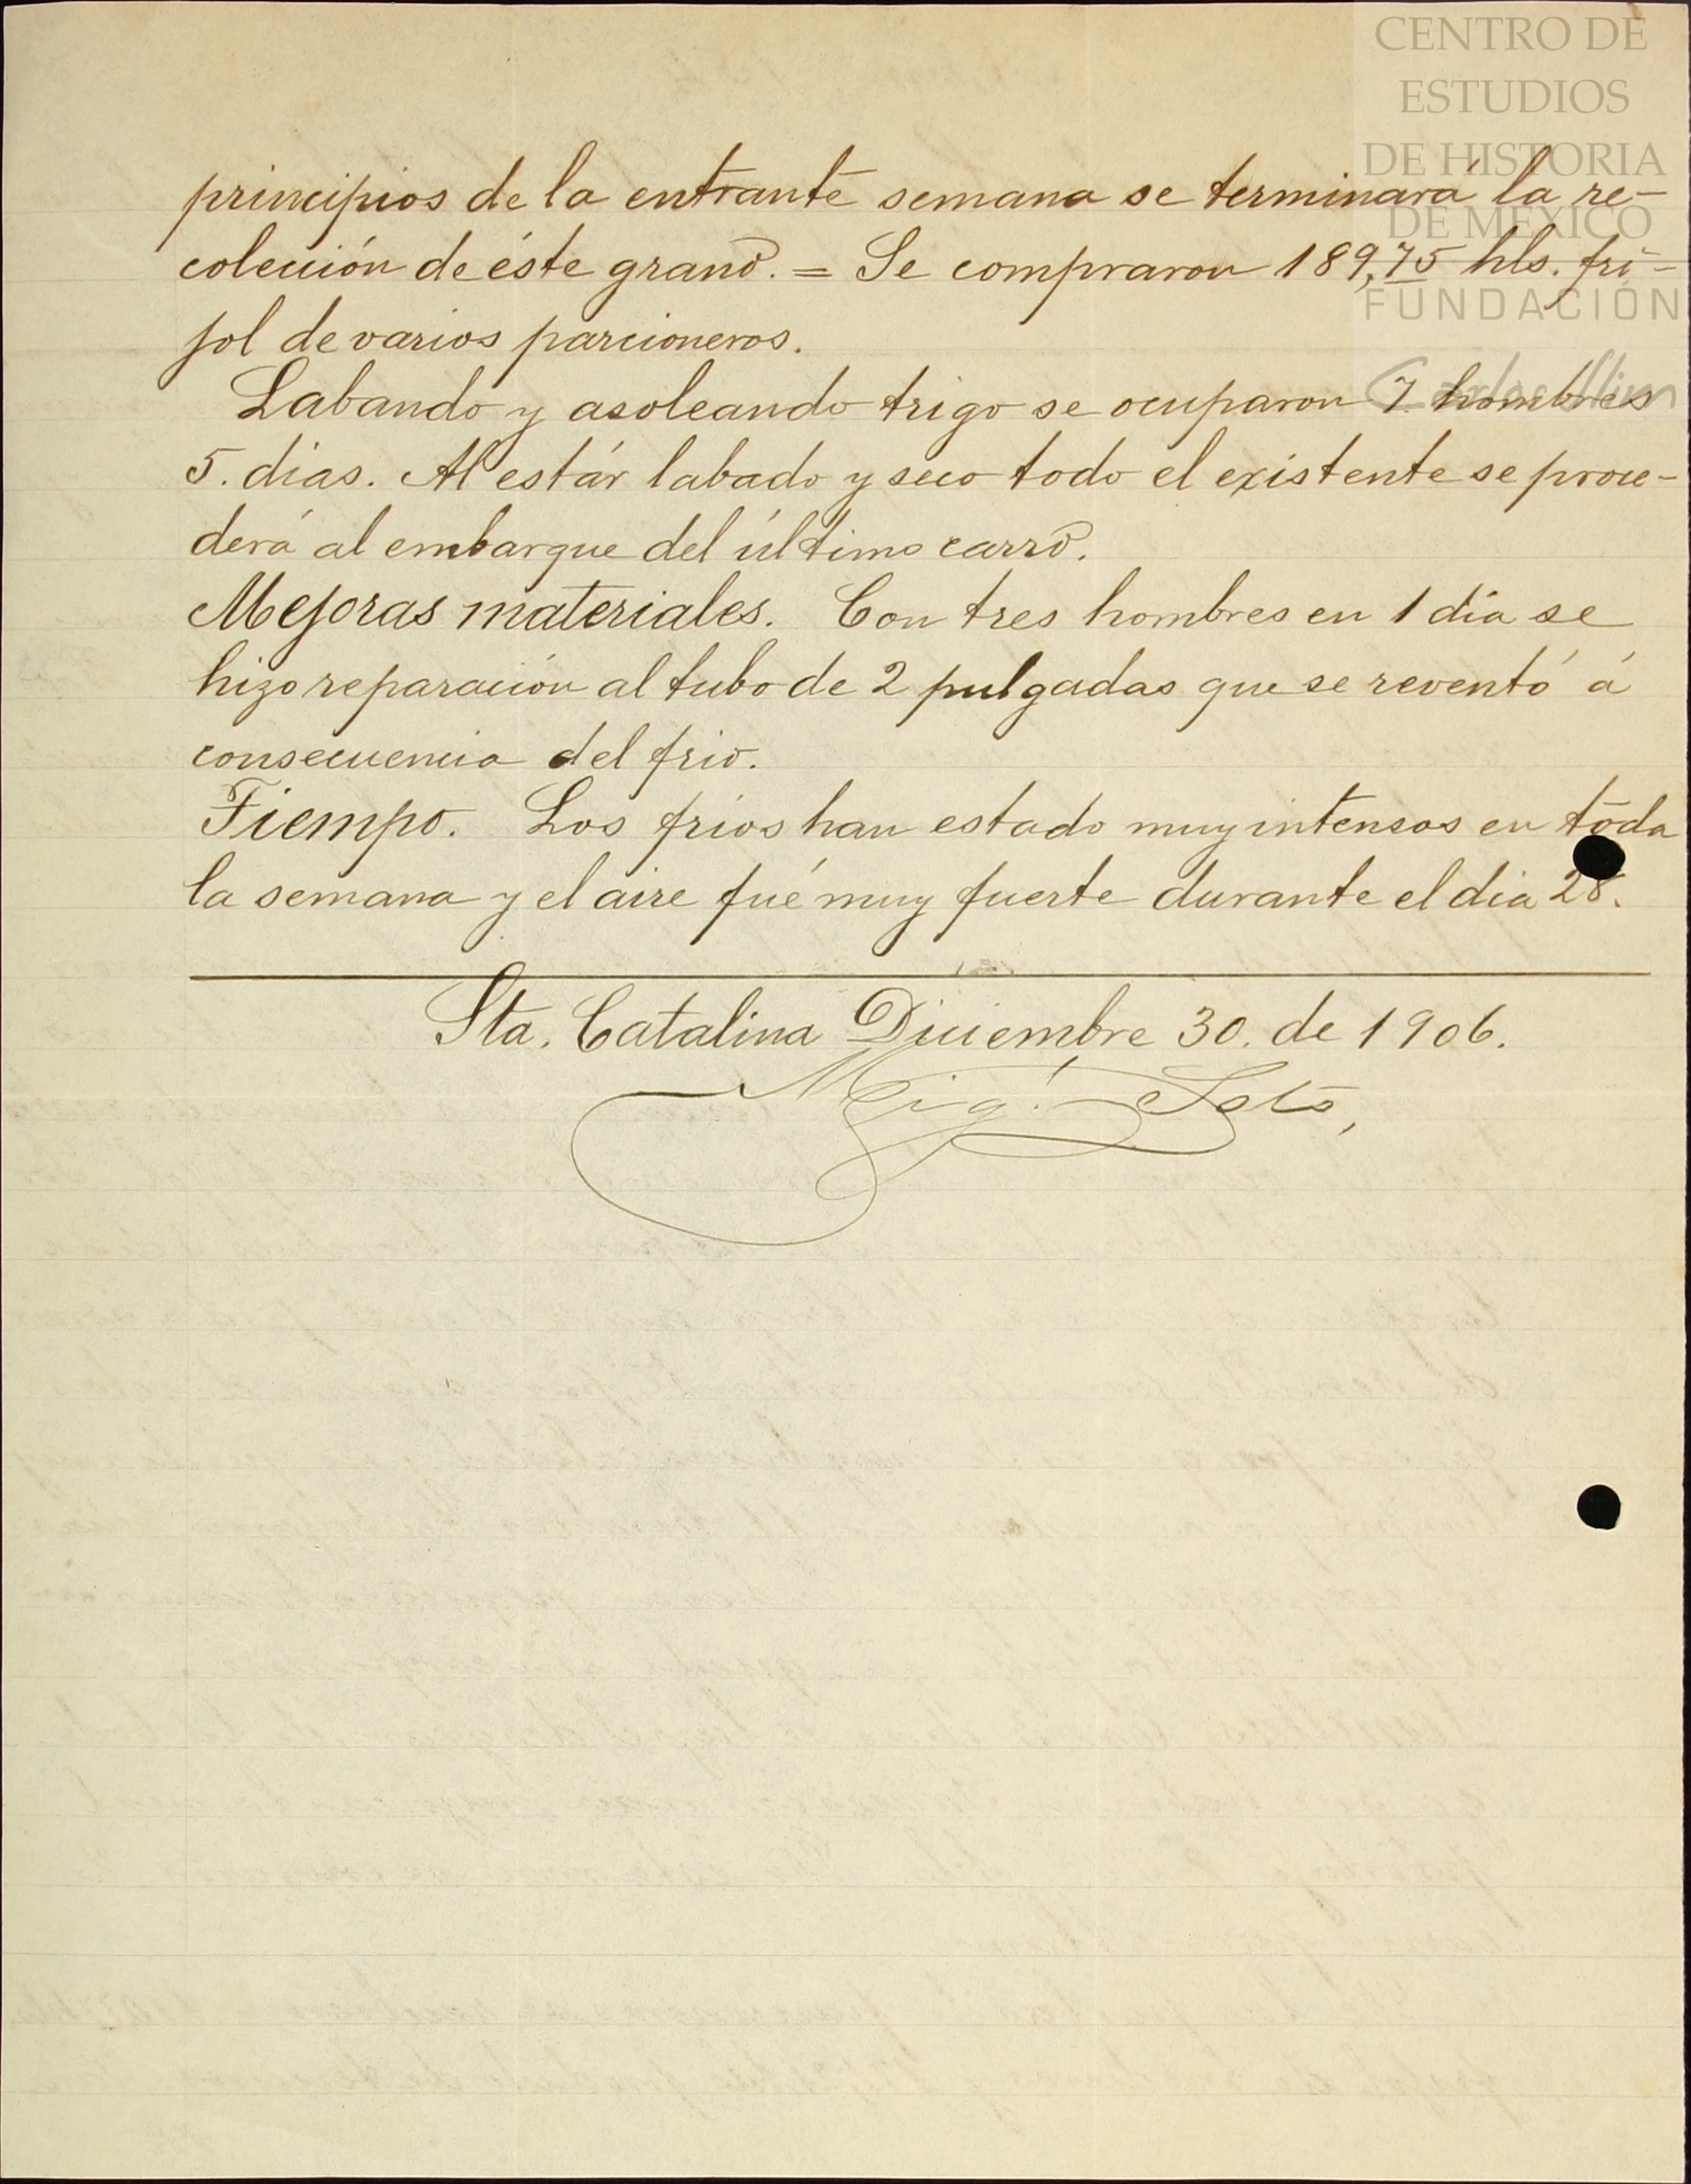 CENTRO DE
ESTUDIOS
DE HISTORIA
DE MÉXICO
FUNDACIÓN
Carlos Slim
principios de la entrante semana se terminará la re-
colección de éste grano. = Se compraron 189,75 hls. fri-
jol de varios parcioneros.
Labando y asoleando trigo se ocuparon 7. hombres
5. dias. Al estár labado y seco todo el existente se proce-
derá al embarque del último carro.
Mejoras materiales. Con tres hombres en 1 día se
hizo reparación al tubo de 2 pulgadas que se reventó á
consecuencia del frio.
Tiempo. Los fríos han estado muy intensos en toda
la semana y el aire fué muy fuerte durante el dia 28.
Sta. Catalina Diciembre 30. de 1906.
Mig. Soto,